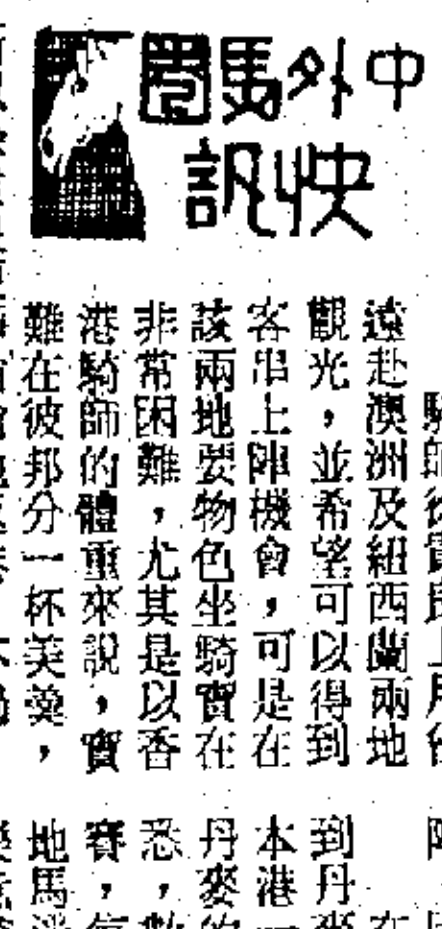 中外馬圈
快訊
遠赴澳洲及紐西蘭兩地
觀光，並希望可以得到
客串上陣機會，可是在
該兩地要物色坐騎實在
非常困難，尤其是以香
港騎師的體重來說，實
難在彼邦分一杯美羹，
到丹
本港一
丹麥的
悉，數
賽，
地馬